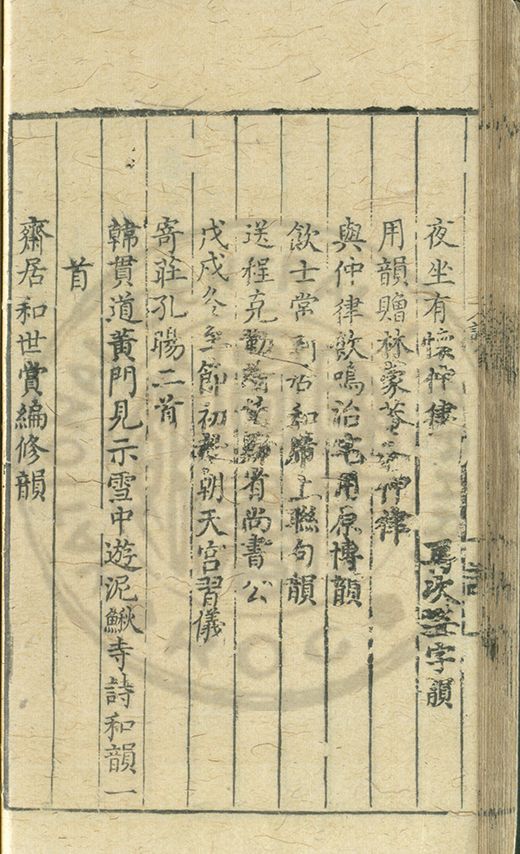 夜坐有懷仲律　再次益字韻
用韻贈林蒙菴　仲律
與仲律飲鳴治宅用原博韻
飲士常　和　上聯句韻
送程克勤　省尚書公
戊戌冬至節初　朝天宮習儀
寄莊孔暘二首
韓貫道黃門見示雪中遊泥鰍寺詩和韻一
首
齋居和世賞編修韻